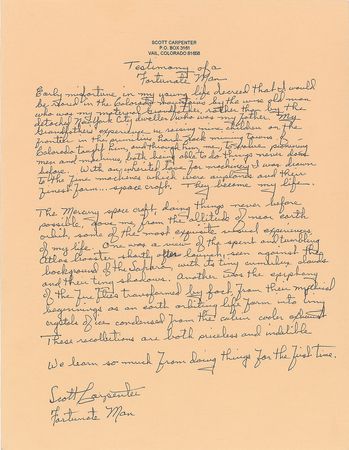 SCOTT CARPENTER
P.O. BOX 3161
VAIL, COLORADO 81658
Testimony of a
Fortunate Man
Early misfortune in my young life decreed that I would
be stored in the Colorado mountains by the wise old man
who was my maternal Grandfather rather than by the
New York City dweller who was my father. My
Grandfathers' experience in raising nine children on the
frontier in the primitive hard rock mining towns of
Colorado taught him, and through him, me, to value pioneering
men and machines, both being able to do things never done
before. With any inherited love for machinery I was drawn
to the fine machines which were airplanes and their
finest form...space craft. They became my life.
The Mercury space craft, doing things never before
possible, gave me, from the altitude of near earth
orbit, some of the most exquisite visual experiences
of my life. One was a view of the spent and tumbling
Atlas booster shortly after launch, seen against the
background of the Sahara, with its tiny cumulus clouds
and their tiny shadows. Another was the epiphany
of the Fire Flies transformed by fact, from their mythical
beginnings as an earth orbiting life form into tiny
crystals of ice condensed from the cabin cooler exhaust
These recollections are both priceless and indelible
We learn so much from doing things for the first time.
Scott Carpenter
Fortunate Man